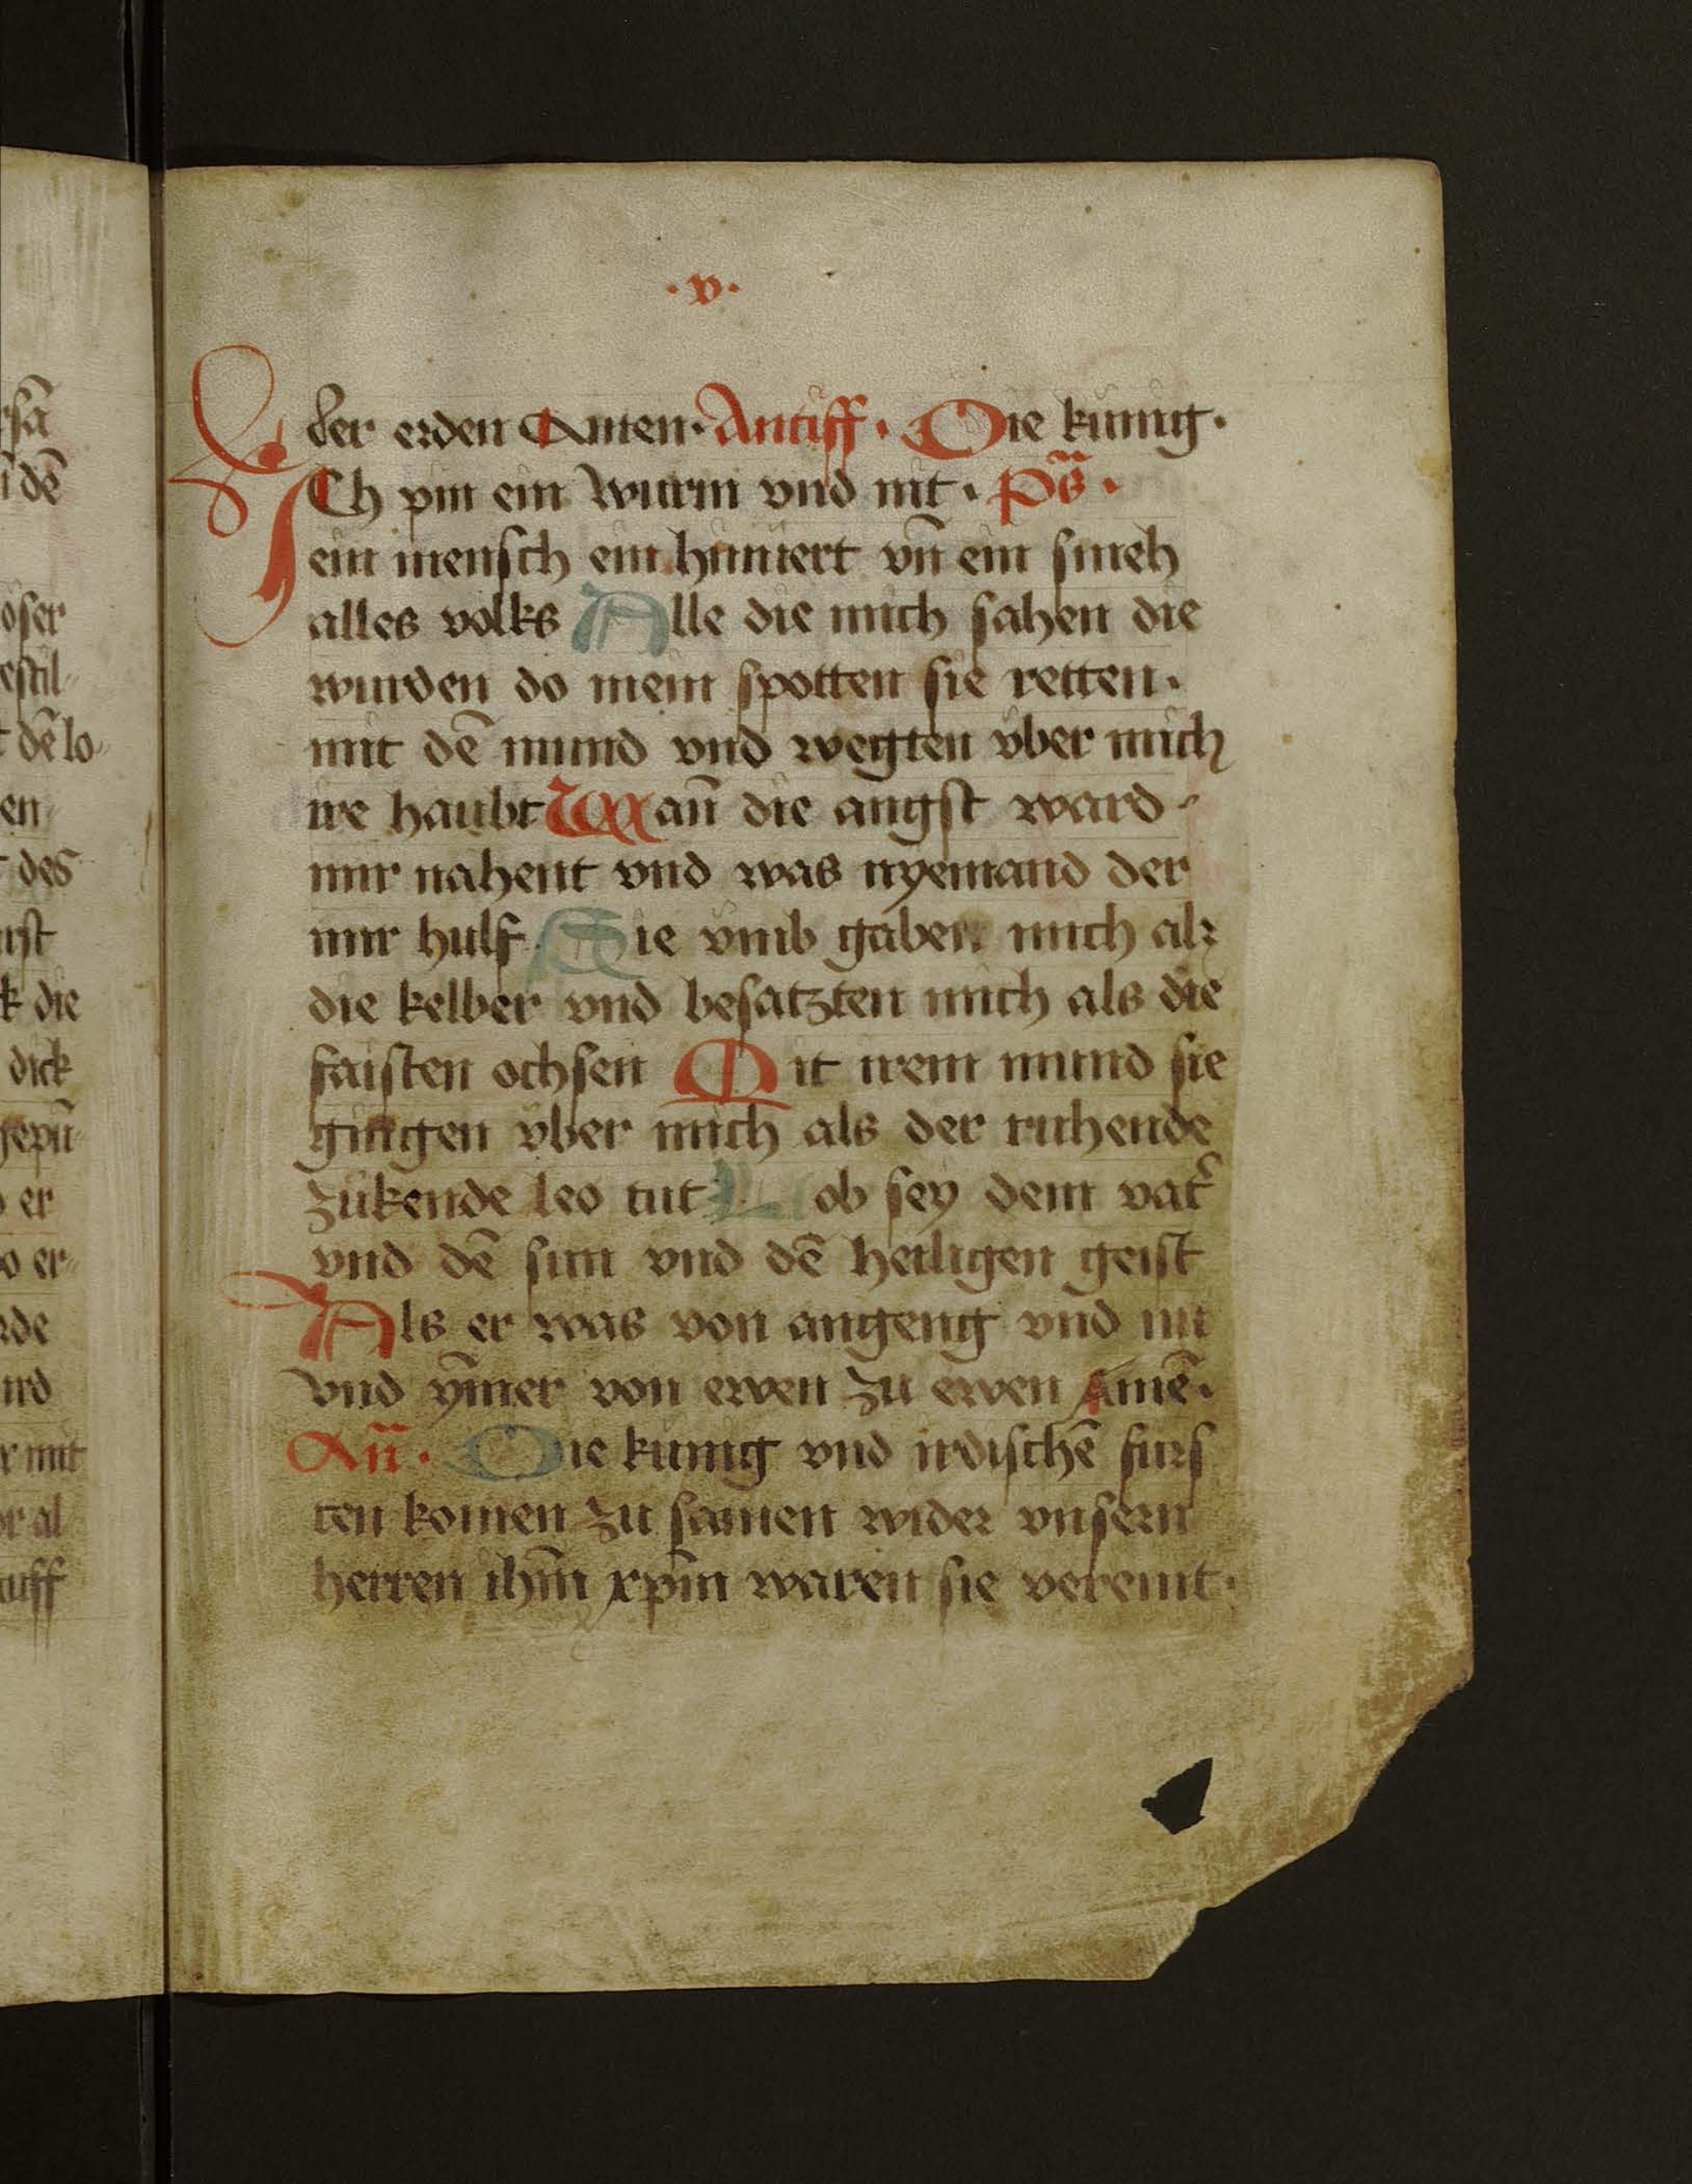 ·v·
der erden Amen· Antiff· Die kunig·
ICh pin ein wurm vnd nit· ps̄·
ein mensch ein huntert vn̄ ein smeh
alles volks Alle die mich sahen die
wurden do mein spotten sie retten·
mit dē mund vnd wegten vber mich
ire haubt Wan̄ die angst ward
mir nahent vnd was nyemand der
mir hulf Sie vmb gaben mich als
die kelber vnd besatzten mich als die
faisten ochsen Mit irem mund sie
gingen vber mich als der ruhende
zukende leo tut Lob sey dem vat̄
vnd dē sun vnd dē heiligen geist
Als er was von angeng vnd nu
vnd ym̄er von ewen zu ewen Amē·
An̄· Die kunig vnd irdischē furs
ten komen zu samen wider vnsern
herren ihm̄ xpm̄ waren sie vereint·